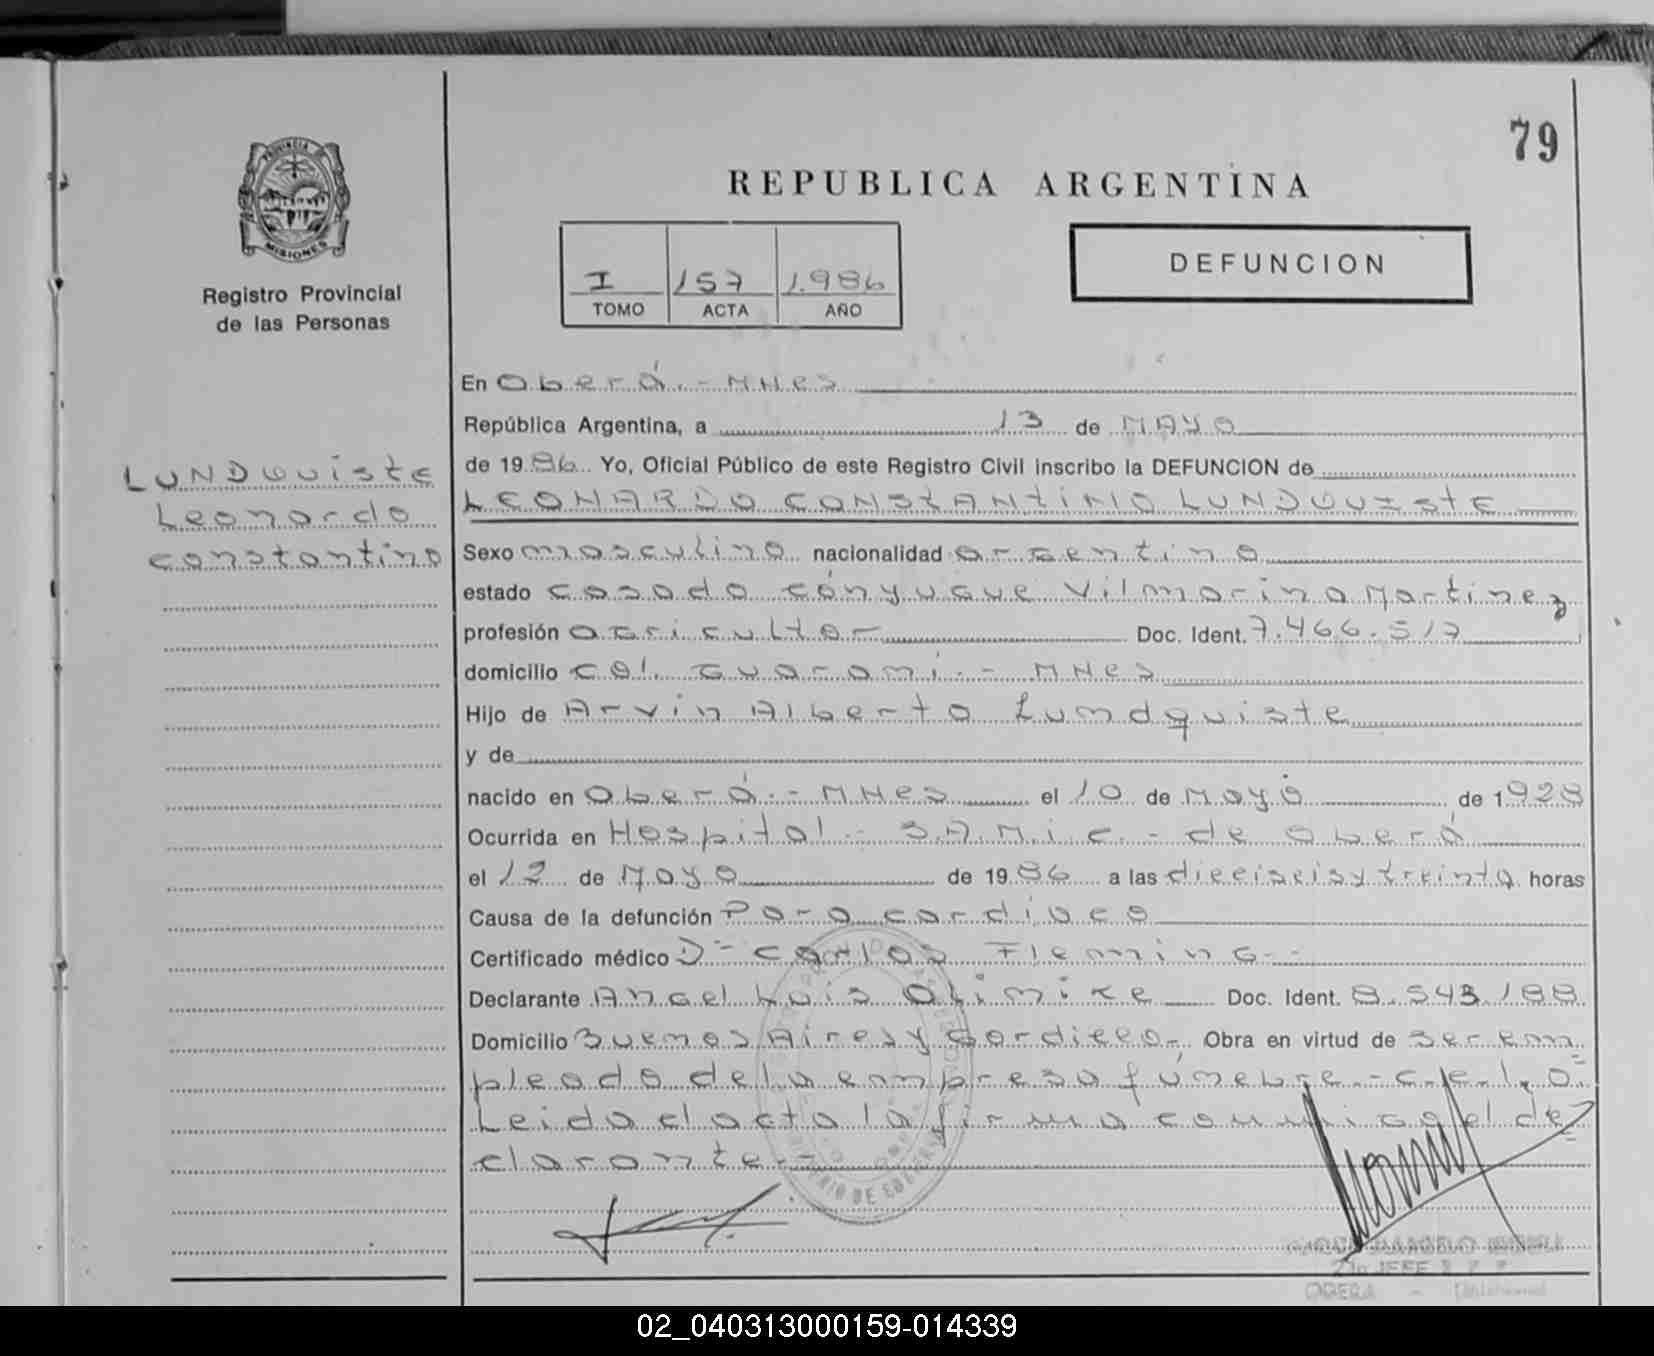 79
PROVINCIA
MISIONES
Registro Provincial
de las Personas
REPUBLICA ARGENTINA
I 157 1.986
TOMO ACTA AÑO
DEFUNCION
LUNDQuiste
Leonardo
constantino
En Oberá.- MNes
República Argentina, a 13 de MAYO
de 1986 Yo, Oficial Público de este Registro Civil inscribo la DEFUNCION de
LEONARDO CONSTANTINO LUNDQUISTE
Sexo masculino nacionalidad argentino
estado casado cónyugue Vilmarina Martinez
profesión agricultor Doc. Ident. 7.466.517
domicilio col. Guarani.- MNes
Hijo de Arvin Alberto Lundquiste
y de
nacido en Oberá.- MNes el 10 de Mayo de 1928
Ocurrida en Hospital - S.A.M.i.c.- de Oberá
el 12 de Mayo de 1986 a las dieciseis y treinta horas
Causa de la defunción Paro cardiaco
Certificado médico Dr. Carlos Fleming.-
Declarante Angel Luis Doc. Ident. 8.543.188
Domicilio Buenos Aires y Obra en virtud de ser em
pleado de la empresa fúnebre.- c.e.l.o.
Leida el acta la firma conmigo el de
clarante.-
OBERA - Misiones
02_040313000159-014339